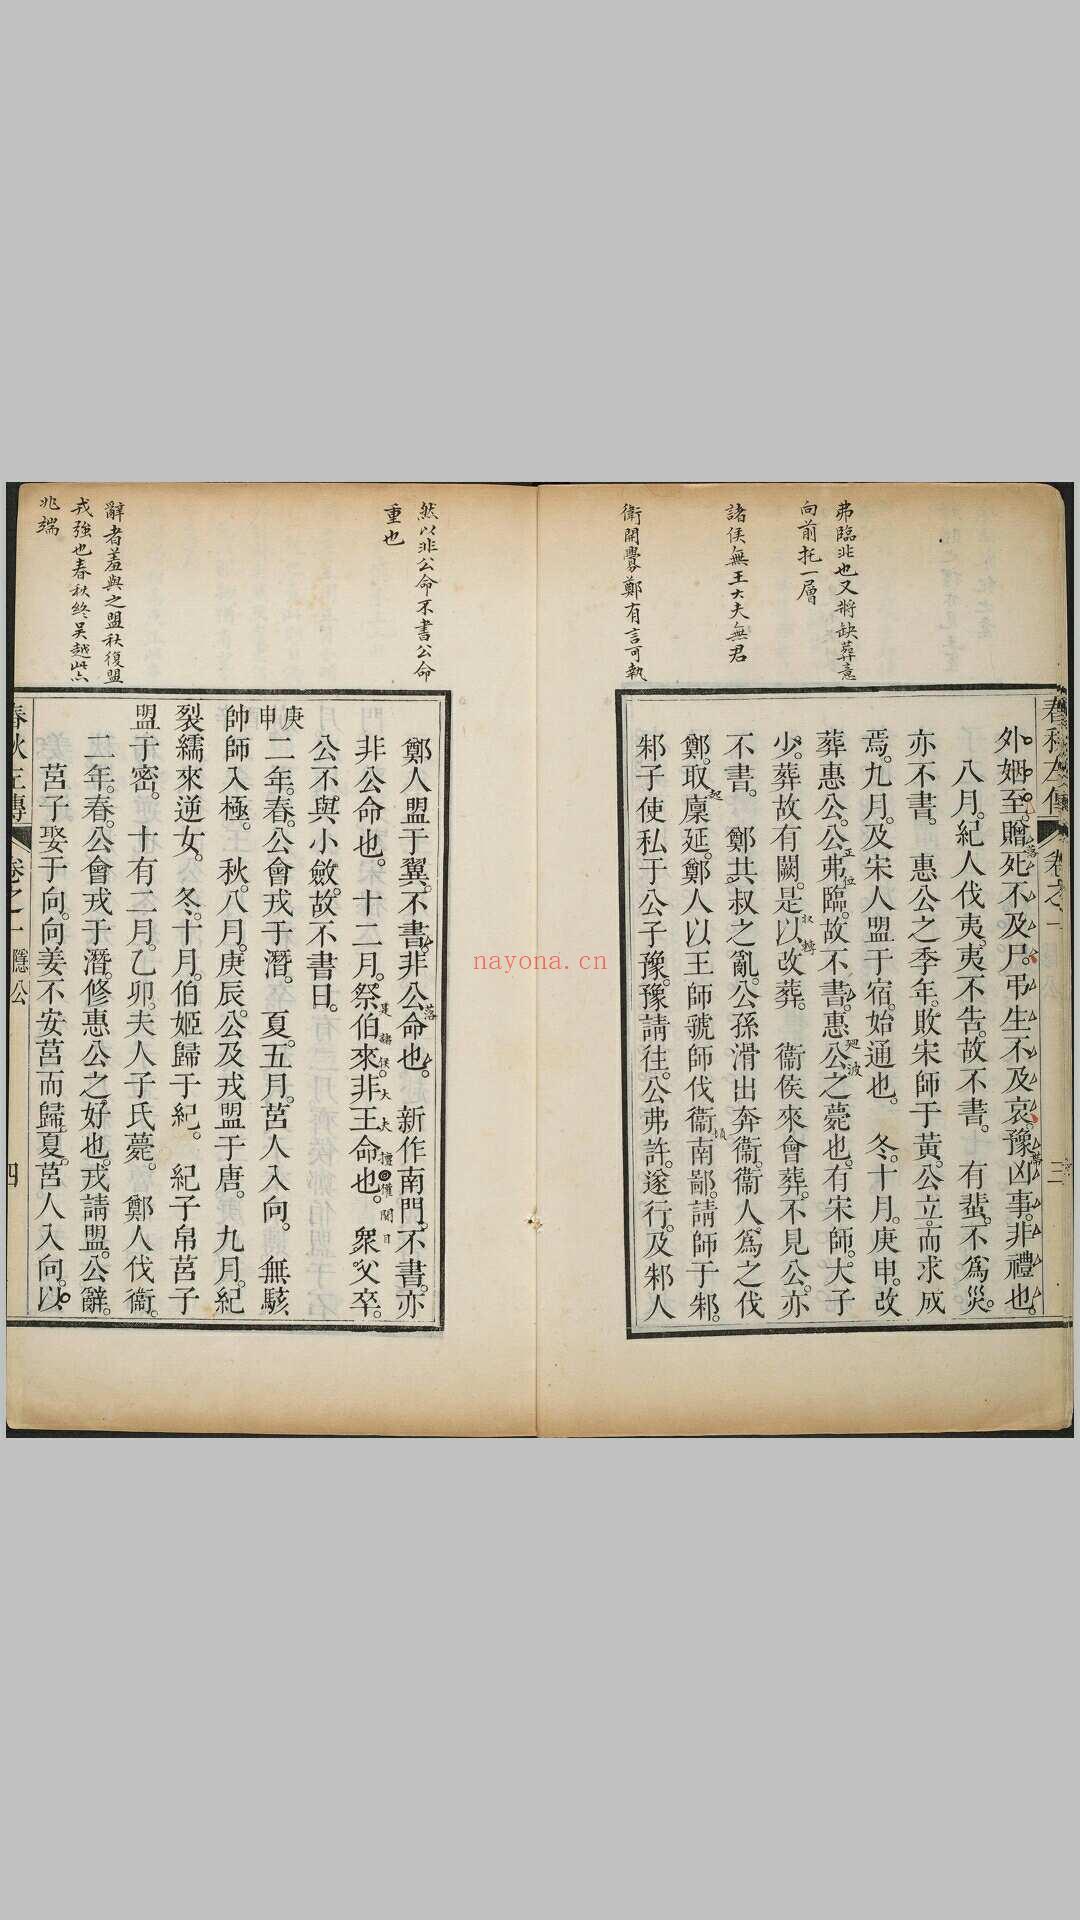 弗臨非也又將缺葬意
向前托一層
諸侯無王大夫無君
衛開釁鄭有言可執
春秋左傳
卷之一
三
外姻至。贈死不及尸。弔生不及哀。豫凶事。非禮也。
八月。紀人伐夷。夷不告。故不書。 有蜚。不爲災。
亦不書。 惠公之季年。敗宋師于黃。公立。而求成
焉。九月。及宋人盟于宿。始通也。 冬。十月。庚申。改
葬惠公。公弗臨。故不書。惠公之薨也。有宋師。大子
少。葬故有闕。是以改葬。 衞侯來會葬。不見公。亦
不書。 鄭共叔之亂。公孫滑出奔衞。衞人爲之伐
鄭。取廩延。鄭人以王師虢師伐衞南鄙。請師于邾。
邾子使私于公子豫。豫請往。公弗許。遂行。及邾人
然以非公命不書公命
重也
辭者羞與之盟秋復盟
戎強也春秋終吳越此六
兆端
鄭人盟于翼。不書。非公命也。 新作南門。不書。亦
非公命也。十二月。祭伯來。非王命也。 衆父卒。
公不與小斂。故不書日。
庚申二年。春。公會戎于潛。 夏。五月。莒人入向。 無駭
帥師入極。 秋。八月。庚辰。公及戎盟于唐。 九月。紀
裂繻來逆女。 冬。十月。伯姬歸于紀。 紀子帛莒子
盟于密。 十有二月。乙卯。夫人子氏薨。 鄭人伐衞。
二年。春。公會戎于潛。修惠公之好也。戎請盟。公辭。
莒子娶于向。向姜不安莒而歸。夏。莒人入向。以
春秋左傳
卷之一
隱公
四
nayona.cn